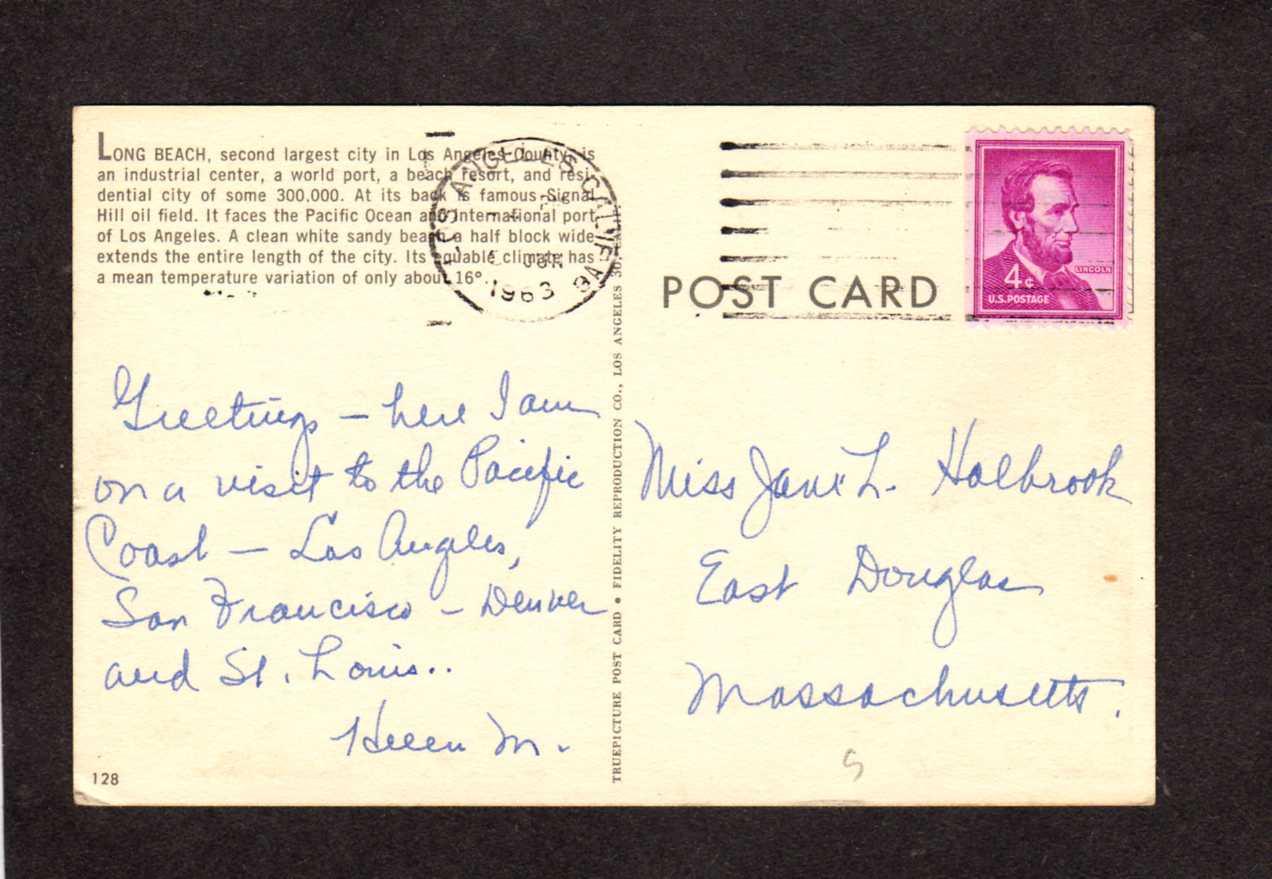 LONG BEACH, second largest city in Los Angeles County, is
an industrial center, a world port, a beach resort, and resi-
dential city of some 300,000. At its back is famous Signal
Hill oil field. It faces the Pacific Ocean and International port
of Los Angeles. A clean white sandy beach a half block wide
extends the entire length of the city. Its equable climate has
a mean temperature variation of only about 16°.
LOS ANGELES CALIF
1963
POST CARD
LINCOLN
4¢
U.S. POSTAGE
Greetings – here I am
on a visit to the Pacific
Coast – Los Angeles,
San Francisco – Denver
and St. Louis..
Helen M.
128
TRUEPICTURE POST CARD • FIDELITY REPRODUCTION CO., LOS ANGELES
Miss Jane L. Holbrook
East Douglas
Massachusetts.